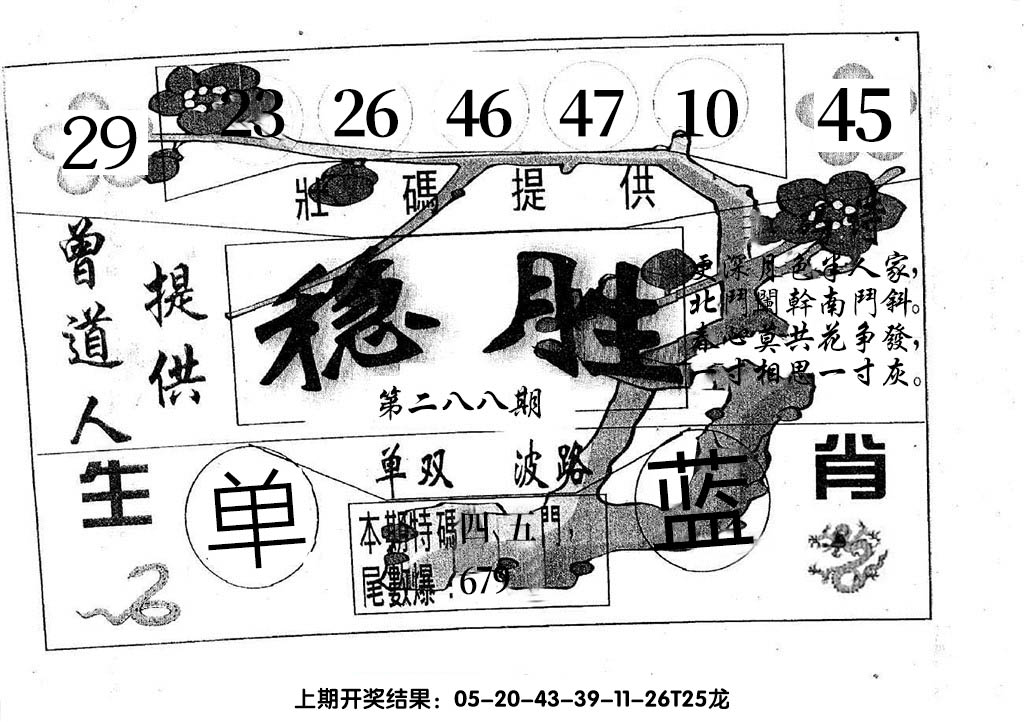 29 23 26 46 47 10 45
壯碼提供
特
曾道人
提供
稳胜
第二八八期
更深月色半人家，
北鬥闌幹南鬥斜。
春心莫共花争發，
一寸相思一寸灰。
单双 波路
生肖
单
蓝
本期特碼四、五門，
尾數爆：679
上期开奖结果：05-20-43-39-11-26T25龙